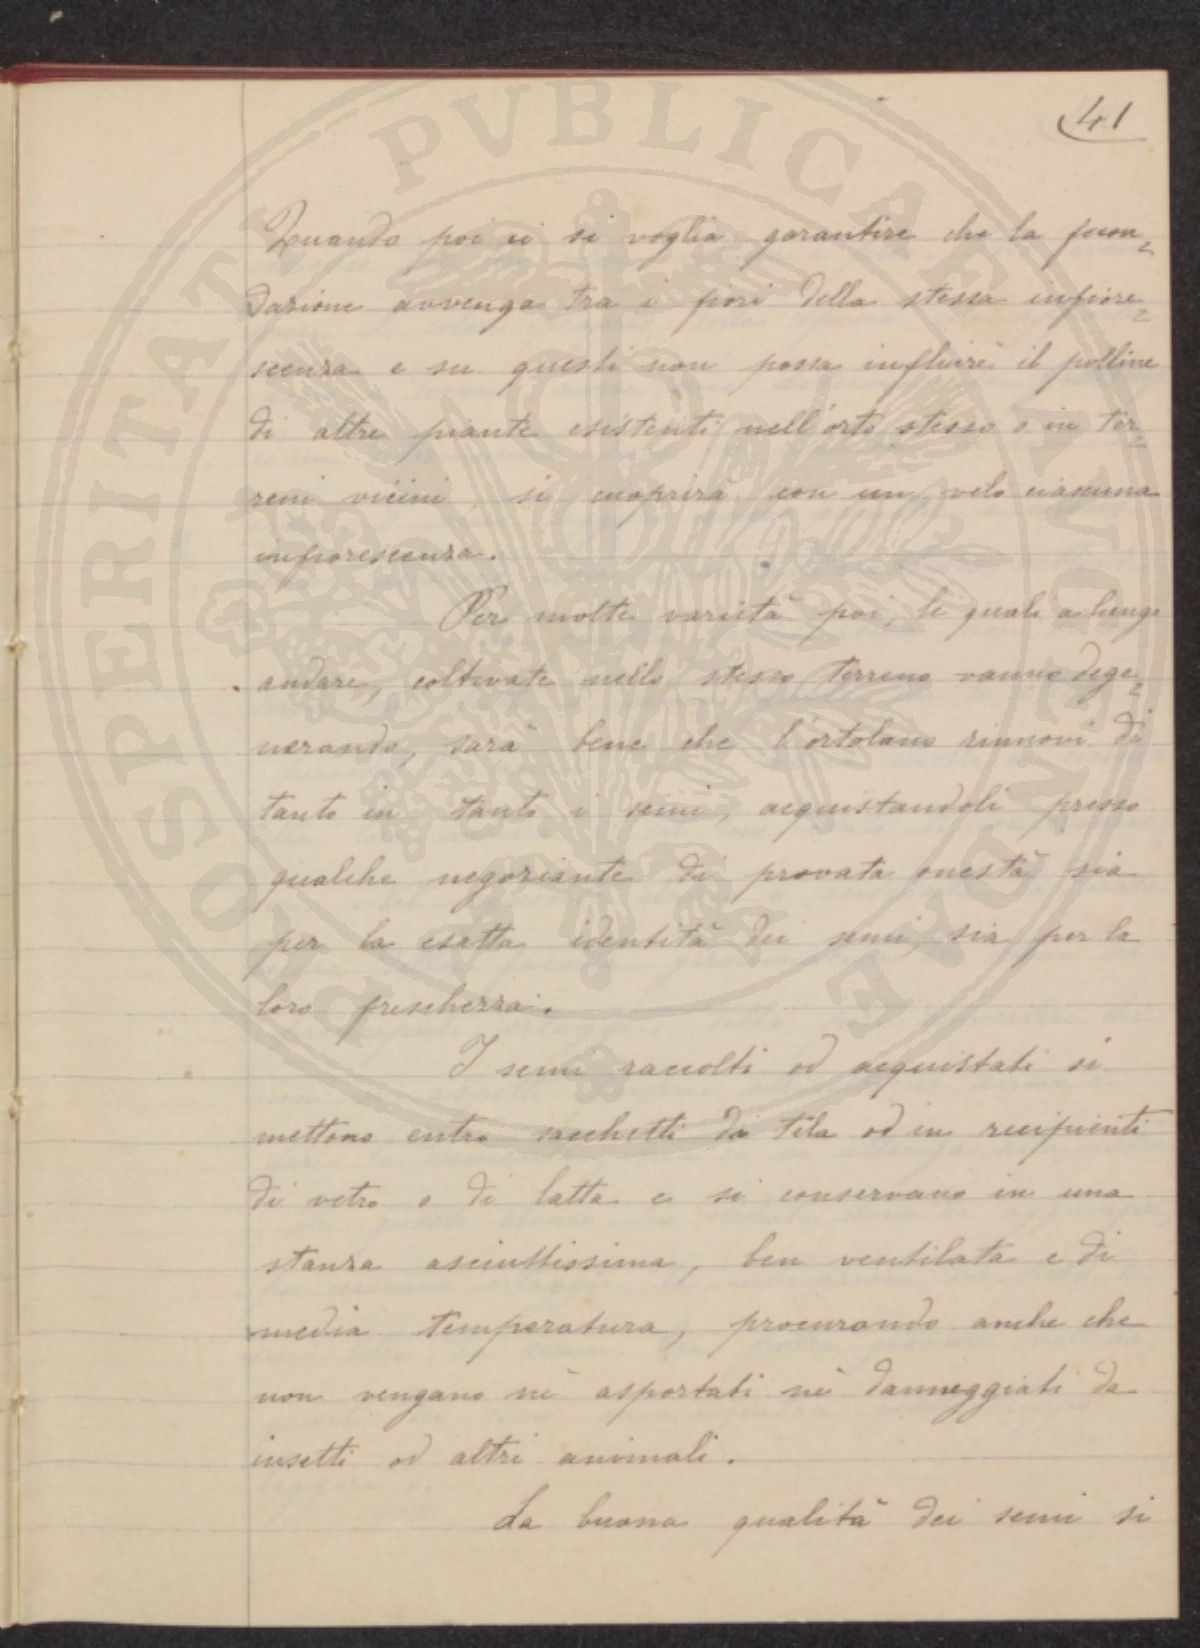 41
Quando poi ci si voglia garantire che la fecon=
dazione avvenga tra i fiori della stessa infiore=
scenza e su questi non possa influire il polline
di altre piante esistenti nell'orto stesso o in ter=
reni vicini, si cuoprirà con un velo ciascuna
infiorescenza.
Per molte varietà poi, le quali a lungo
andare, coltivate nello stesso terreno vanno dege=
nerando, sarà bene che l'ortolano rinnovi di
tanto in tanto i semi, acquistandoli presso
qualche negoziante di provata onestà sia
per la esatta identità dei semi, sia per la
loro freschezza.
I semi raccolti od acquistati si
mettono entro sacchetti di tela od in recipienti
di vetro o di latta e si conservano in una
stanza asciuttissima, ben ventilata e di
media temperatura, procurando anche che
non vengano nè asportati nè danneggiati da
insetti od altri animali.
La buona qualità dei semi si
PUBLICAE
PROSPERITATI